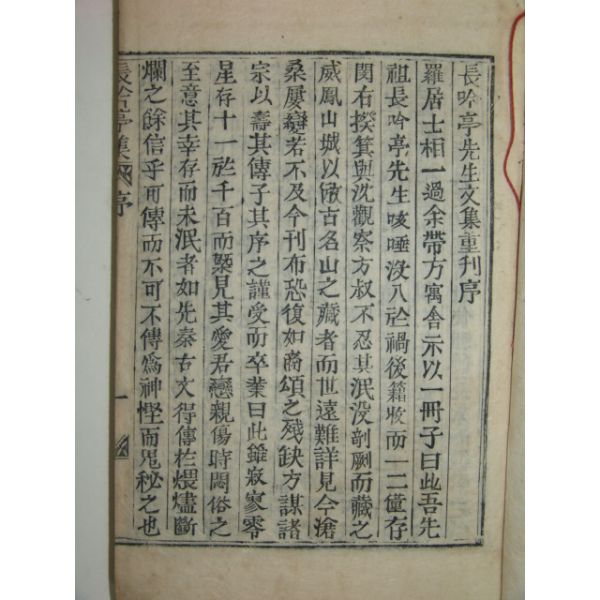 長吟亭先生文集重刊序
羅居士相一過余帶方寓舍示以一冊子曰此吾先
祖長吟亭先生咳唾沒入於禍後籍收而一二僅存
閔右揆箕與沈觀察方叔不忍其泯沒剞劂而藏之
威鳳山城以倣古名山之藏者而世遠難詳見今滄
桑屢變若不及今刊布恐復如商頌之殘缺方謀諸
宗以壽其傳子其序之謹受而卒業曰此雖寂寥零
星存十一於千百而槩見其愛君戀親傷時悶俗之
至意其幸存而未泯者如先秦古文得傳於煨燼斷
爛之餘信乎可傳而不可不傳爲神慳而鬼秘之也
長吟亭集 序 一